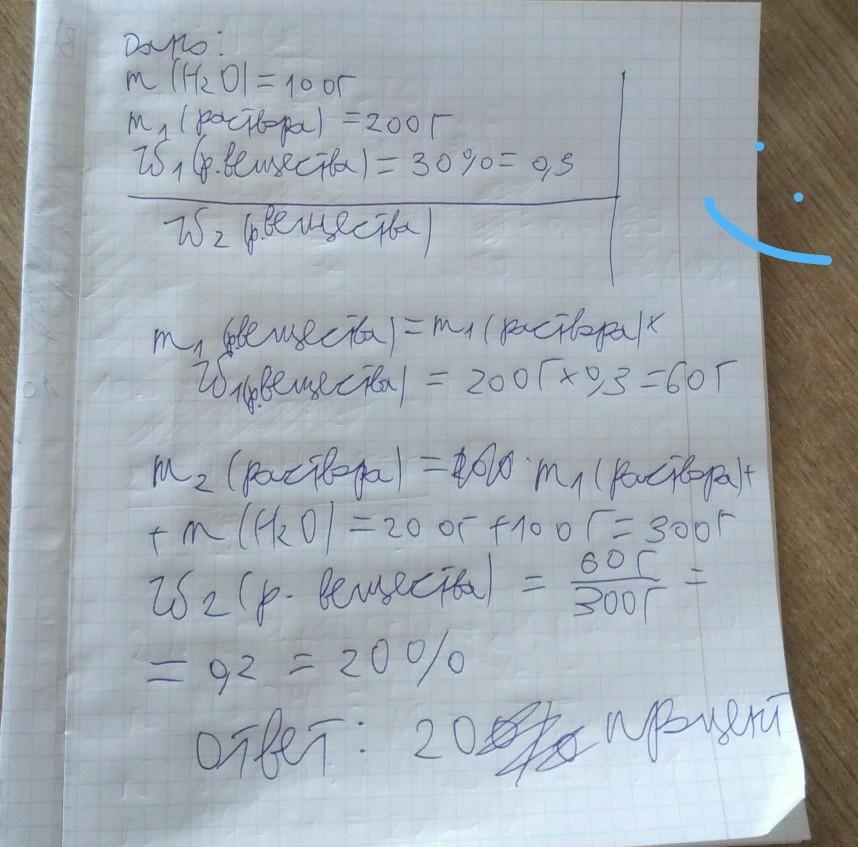 Дано:
m (H2O) = 100г
m1 (раствора) = 200г
W1 (р.вещества) = 30% = 0,3
W2 (р.вещества)
m1 (р.вещества) = m1 (раствора) ×
W1(р.вещества) = 200г × 0,3 = 60г
m2 (раствора) = m1 (раствора) +
+ m (H2O) = 200г + 100г = 300г
W2 (р. вещества) = 60г/300г =
= 0,2 = 20%
Ответ: 20 процент